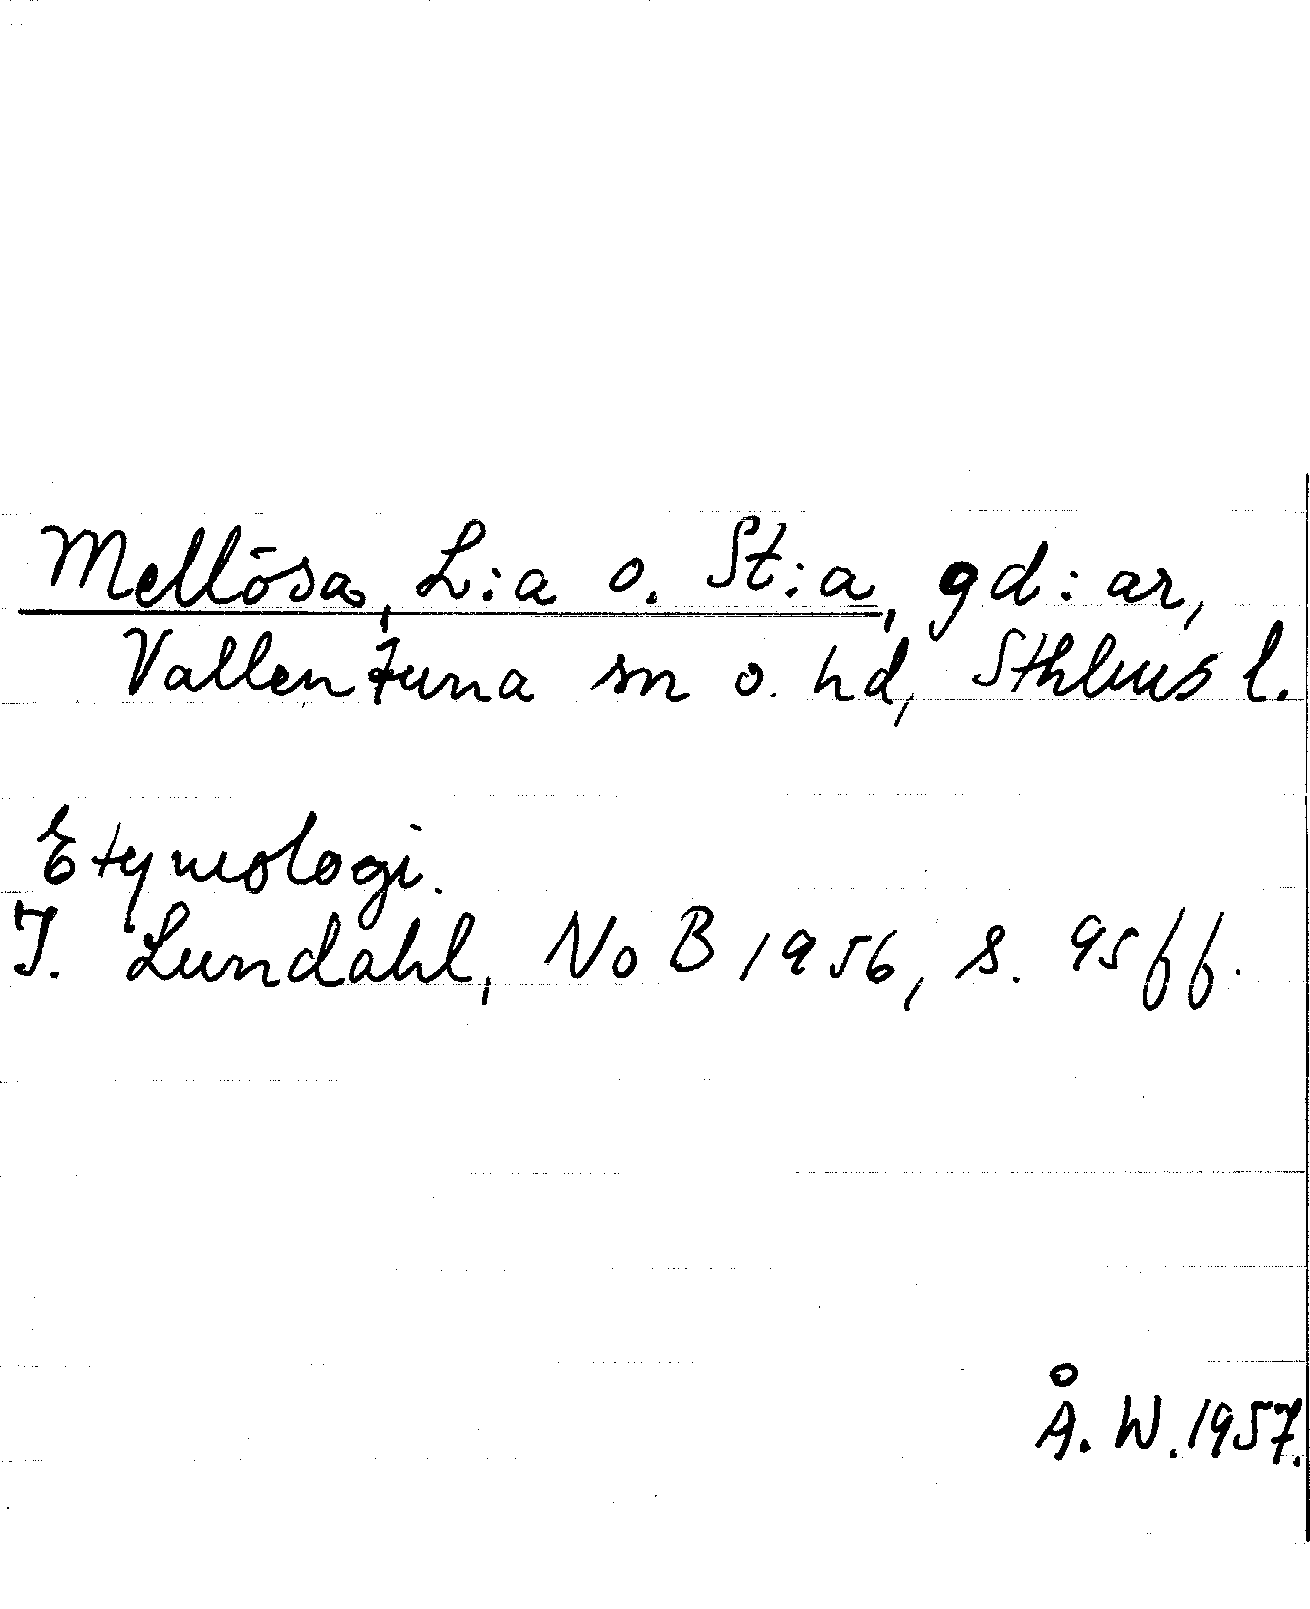 Mellösa, L:a o. St:a, gd:ar,
Vallentuna sn o. hd, Sthlms l.
Etymologi.
I. Lundahl, NoB 1956, s. 95 ff.
Å. W. 1957.